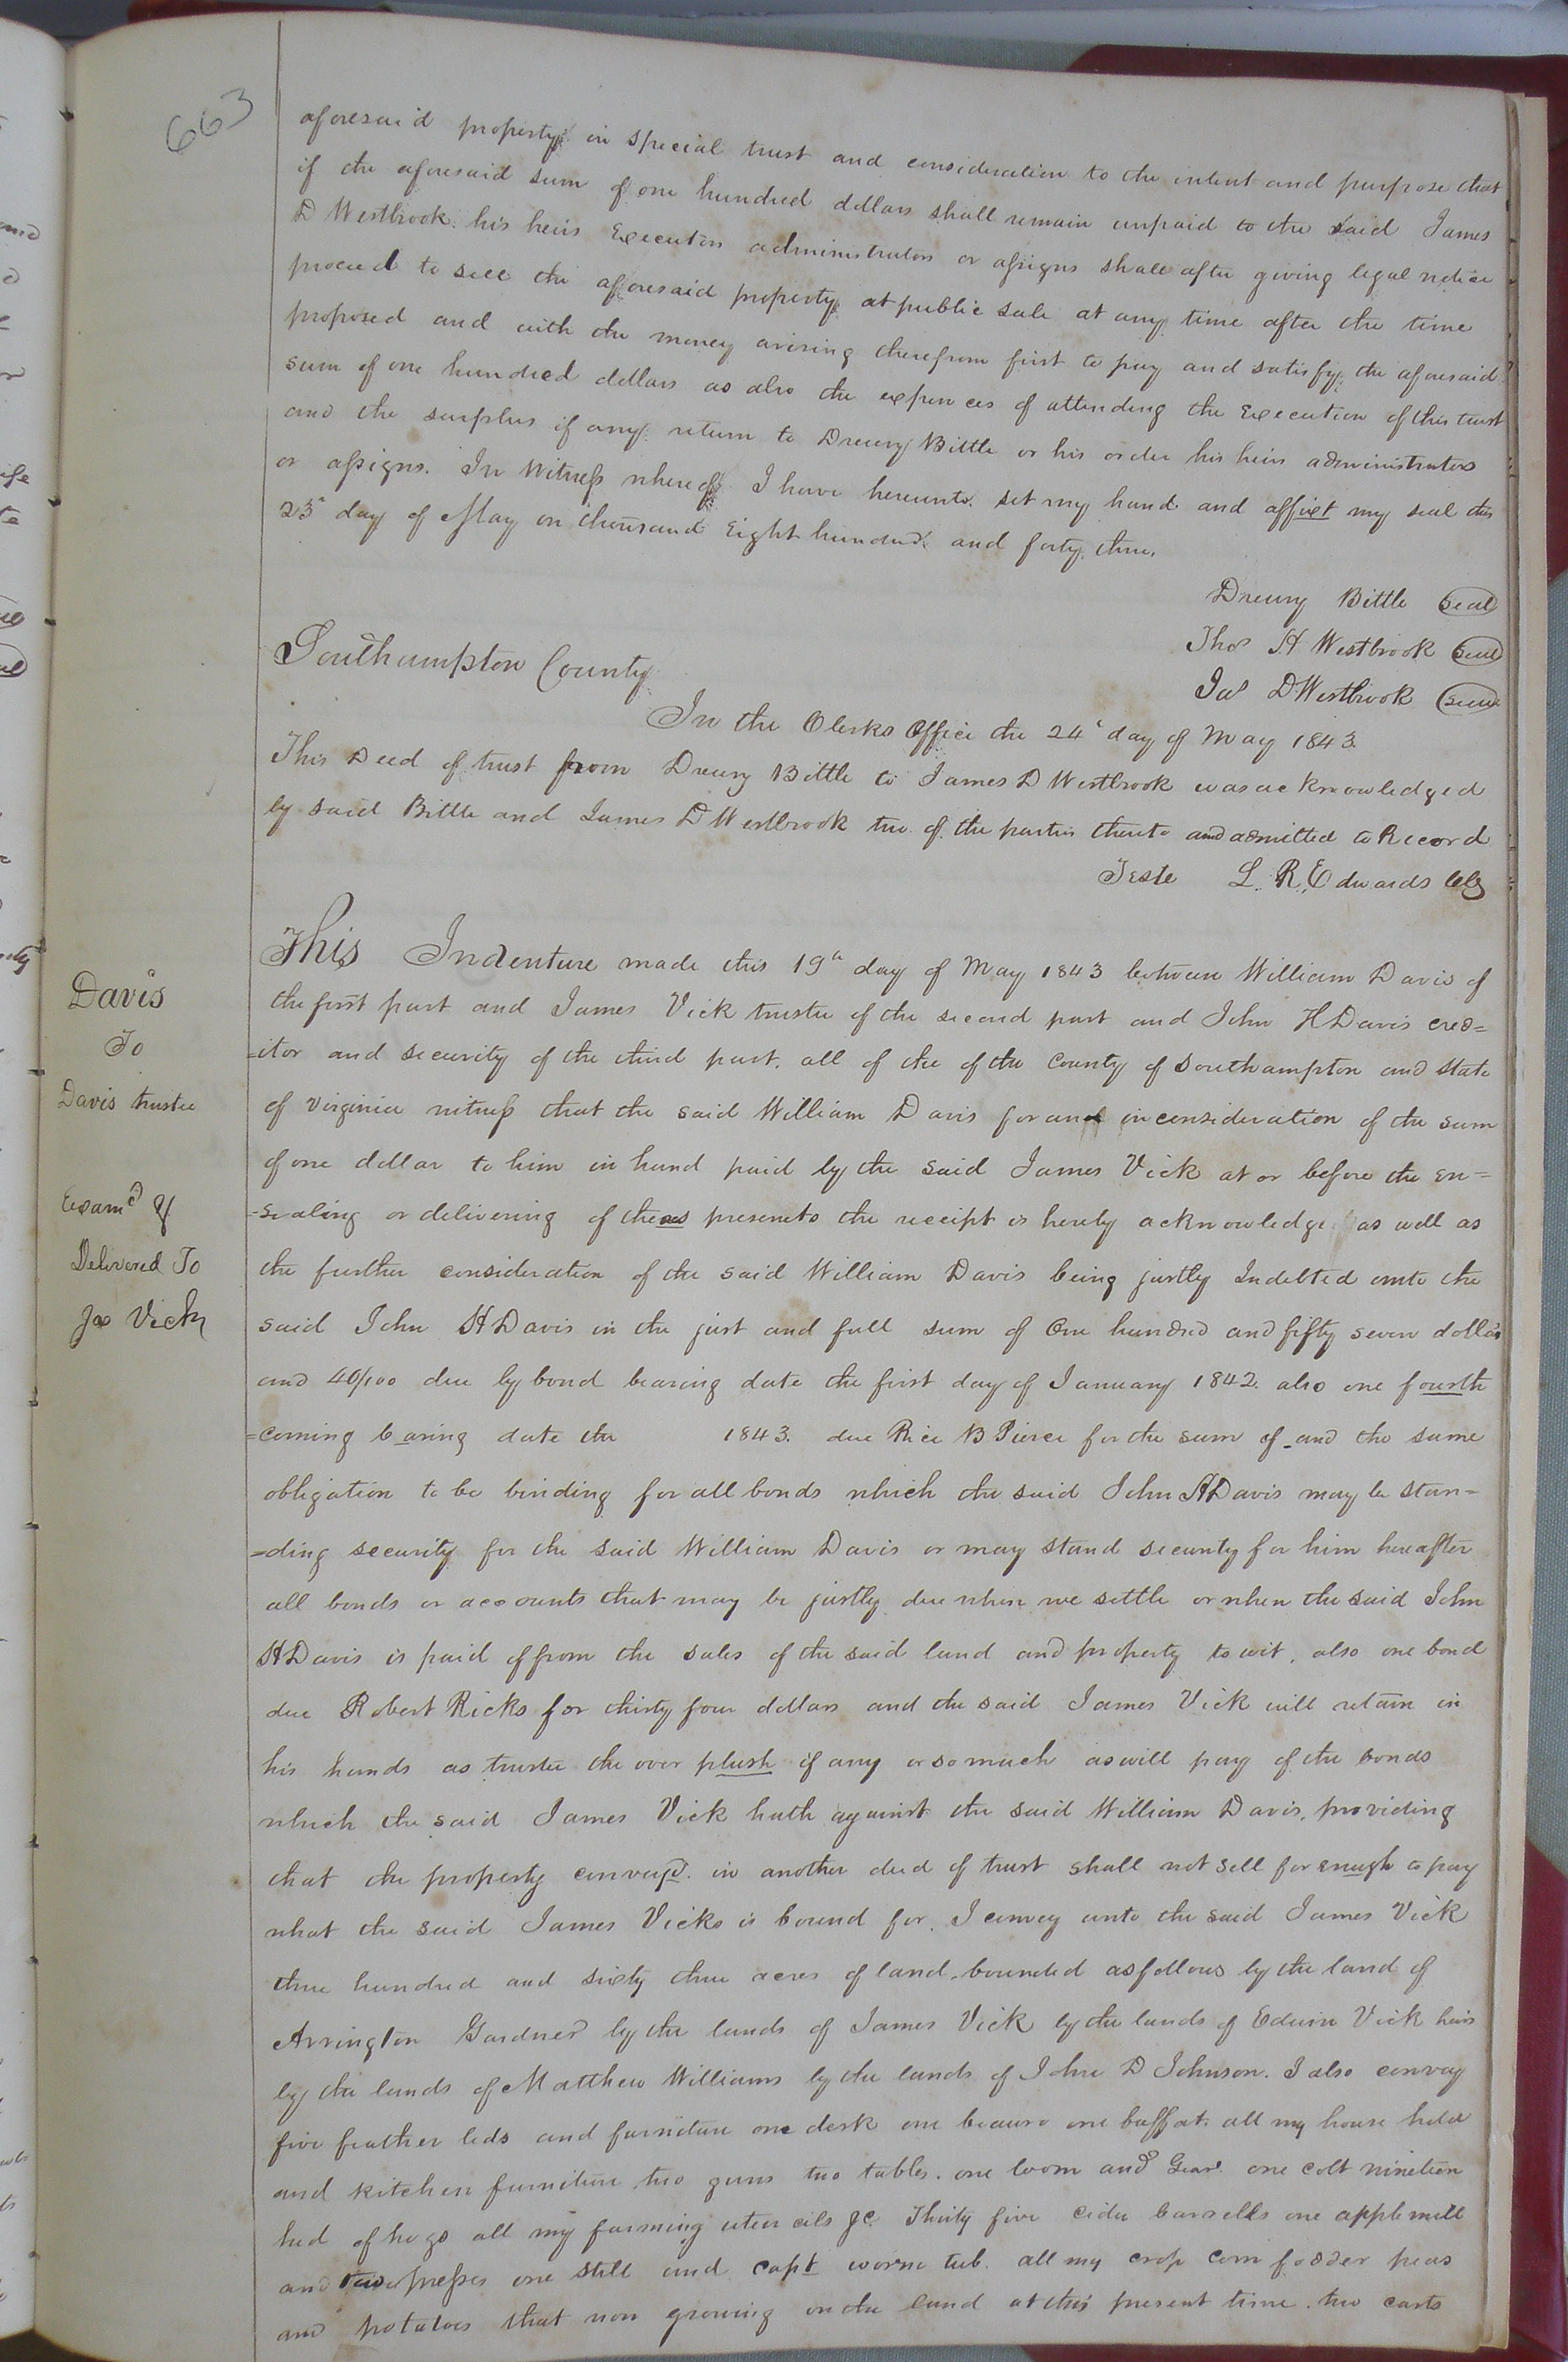 663
aforesaid property in special trust and consideration to the intent and purpose that
if the aforesaid sum of one hundred dollars shall remain unpaid to the said James
D Westbrook his heirs Executors administrators or assigns shall after giving legal notice
proceed to sell the aforesaid property at public sale at any time after the time
proposed and with the money arising therefrom first to pay and satisfy the aforesaid
sum of one hundred dollars as also the expences of attending the Execution of this trust
and the surplus if any return to Drewry Bittle or his order his heirs administrators
or assigns. In Witness whereof I have hereunto set my hand and affixt my seal this
23d day of May on thousand Eight hundred and forty three.
Drewry Bittle seal
Thos H Westbrook seal
Jas D Westbrook seal
Southampton County
In the Clerks Office the 24th day of May 1843
This Deed of trust from Drewry Bittle to James D Westbrook was acknowledged
by said Bittle and James D Westbrook two of the parties thereto and admitted to Record
Teste L. R. Edwards Clk
This Indenture made this 19th day of May 1843 between William Davis of
the first part and James Vick trustee of the second part and John H Davis cred=
=itor and security of the third part. all of the of the County of Southampton and State
of Virginia witness that the said William Davis for and in consideration of the sum
of one dollar to him in hand paid by the said James Vick at or before the en=
-sealing or delivering of theas presents the receipt is hereby acknowledge as well as
the further consideration of the said William Davis being justly Indebted unto the
said John H Davis in the just and full sum of One hundred and fifty seven dollars
and 40/100 due by bond bearing date the first day of January 1842. also one fourth
=coming baring date the 1843. due Rice B Pierce for the sum of - and the same
obligation to be binding for all bonds which the said John H Davis may be stan=
=ding security for the said William Davis or may stand security for him hereafter
all bonds or accounts that may be justly due when we settle or when the said John
H Davis is paid of from the sales of the said land and property to wit, also one bond
due Robert Ricks for thirty four dollars and the said James Vick will retain in
his hands as trustee the over plush if any or so much as will pay of the bonds
which the said James Vick hath against the said William Davis, providing
that the property conveyd in another deed of trust shall not sell for enugh to pay
what the said James Vicks is bound for. I convey unto the said James Vick
three hundred and sixty three acres of land bounded as follows by the land of
Arrington Gardner by the lands of James Vick by the lands of Edwin Vick heirs
by the lands of Matthew Williams by the lands of John D Johnson. I also convey
five feather beds and furniture one desk one beauro one buffat all my house hold
and kitchen furniture two guns two tables. one loom and Gear one colt nineteen
hed of hogs all my farming utencils &c Thirty five cider barrells one apple mill
and two presses one still and capt worm tub. all my crop corn fodder peas
and potatoes that now growing on the land at this present time. two carts
Davis
To
Davis trustee
Examd &
Delivered To
Jas Vick